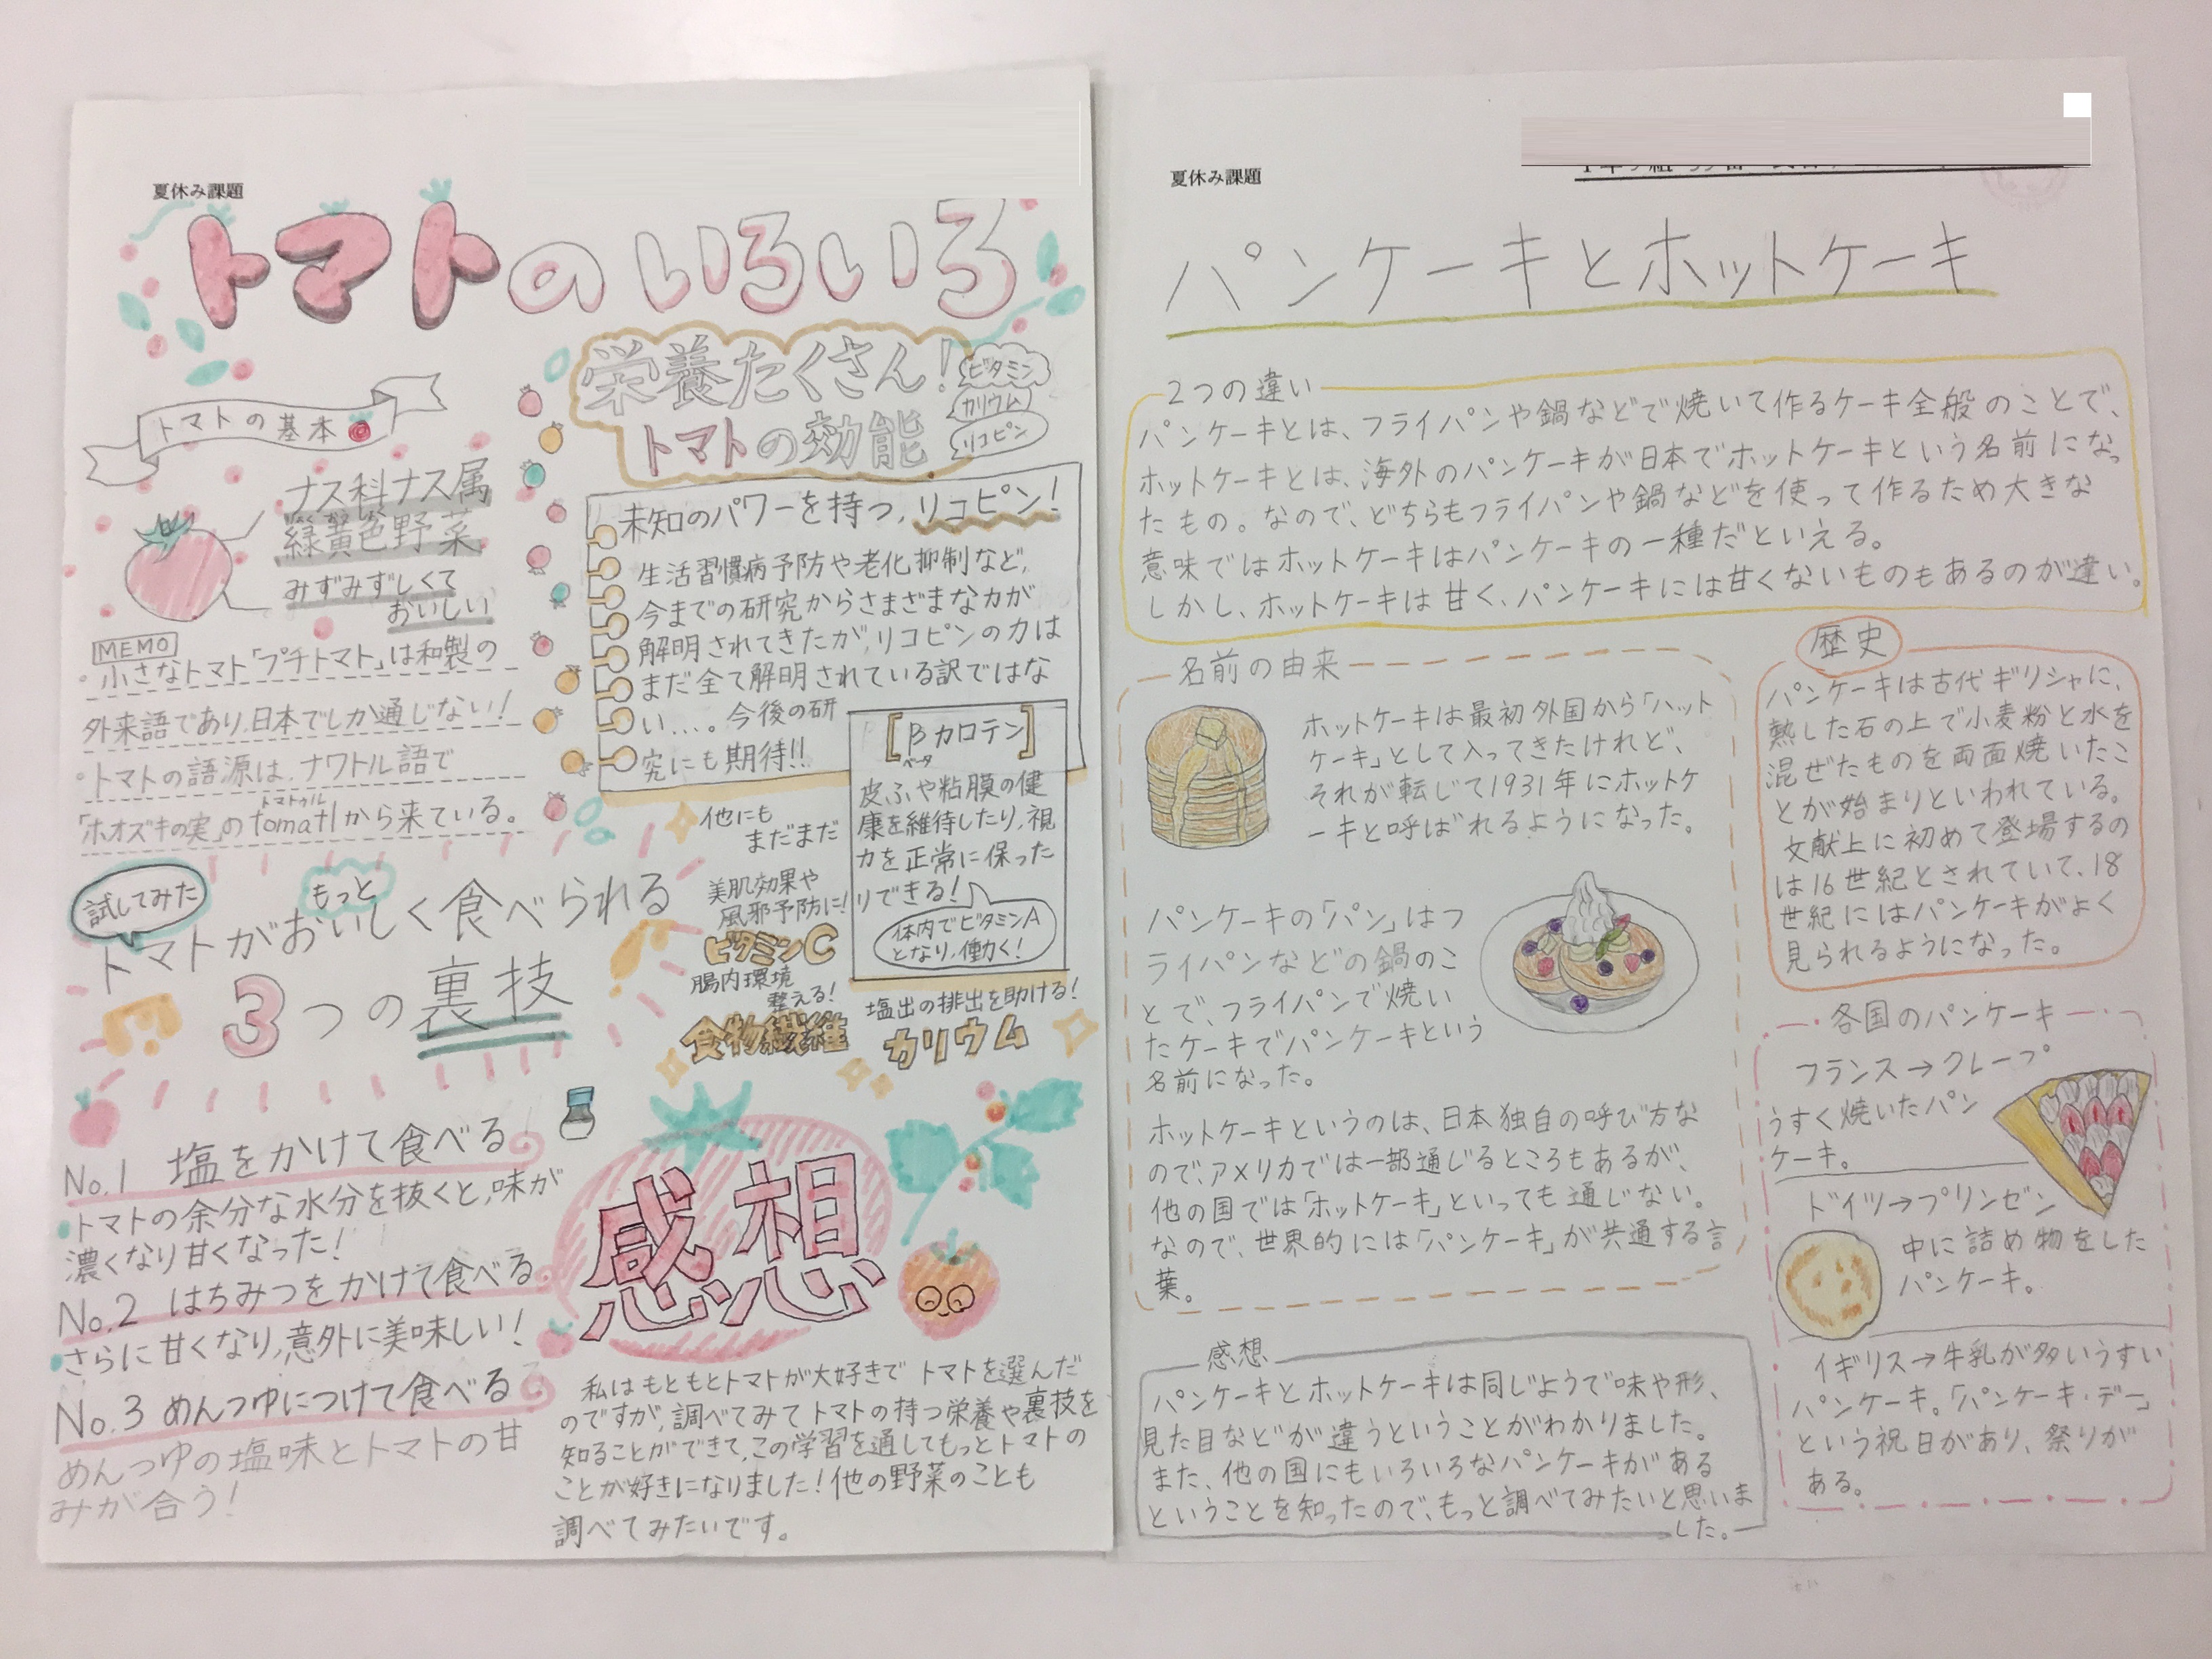 夏休み課題
トマトのいろいろ
トマトの基本
ナス科ナス属
緑黄色野菜
みずみずしくて
おいしい
MEMO
・小さなトマト「プチトマト」は和製の
外来語であり、日本でしか通じない!
・トマトの語源は、ナワトル語で
トマトゥル
「ホオズキの実」のtomatlから来ている。
栄養たくさん!
トマトの効能
ビタミン
カリウム
リコピン
未知のパワーを持つ、リコピン!
生活習慣病予防や老化抑制など、
今までの研究からさまざまな力が
解明されてきたが、リコピンの力は
まだ全て解明されている訳ではな
い...。今後の研
究にも期待!!
[βカロテン]
ベータ
皮ふや粘膜の健
康を維持したり、視
力を正常に保った
りできる!
体内でビタミンA
となり、働く!
他にも
まだまだ
美肌効果や
風邪予防に!
ビタミンC
腸内環境
整える!
食物繊維
塩出の排出を助ける!
カリウム
試してみた
もっと
トマトがおいしく食べられる
3つの裏技
No.1 塩をかけて食べる
・トマトの余分な水分を抜くと、味が
濃くなり甘くなった!
No.2 はちみつをかけて食べる
・さらに甘くなり、意外に美味しい!
No.3 めんつゆにつけて食べる
めんつゆの塩味とトマトの甘
みが合う!
感想
私はもともとトマトが大好きでトマトを選んだ
のですが、調べてみてトマトの持つ栄養や裏技を
知ることができて、この学習を通してもっとトマトの
ことが好きになりました!他の野菜のことも
調べてみたいです。
夏休み課題
パンケーキとホットケーキ
2つの違い
パンケーキとは、フライパンや鍋などで焼いて作るケーキ全般のことで、
ホットケーキとは、海外のパンケーキが日本でホットケーキという名前になっ
たもの。なので、どちらもフライパンや鍋などを使って作るため大きな
意味ではホットケーキはパンケーキの一種だといえる。
しかし、ホットケーキは甘く、パンケーキには甘くないものもあるのが違い。
名前の由来
ホットケーキは最初外国から「ハット
ケーキ」として入ってきたけれど、
それが転じて1931年にホットケ
ーキと呼ばれるようになった。
パンケーキの「パン」はフ
ライパンなどの鍋のこ
とで、フライパンで焼い
たケーキでパンケーキという
名前になった。
ホットケーキというのは、日本独自の呼び方な
ので、アメリカでは一部通じるところもあるが、
他の国では「ホットケーキ」といっても通じない。
なので、世界的には「パンケーキ」が共通する言
葉。
歴史
パンケーキは古代ギリシャに、
熱した石の上で小麦粉と水を
混ぜたものを両面焼いたこ
とが始まりといわれている。
文献上に初めて登場するの
は16世紀とされていて、18
世紀にはパンケーキがよく
見られるようになった。
各国のパンケーキ
フランス→クレープ
うすく焼いたパン
ケーキ。
ドイツ→プリンゼン
中に詰め物をした
パンケーキ。
イギリス→牛乳が多いうすい
パンケーキ。「パンケーキ・デー」
という祝日があり、祭りが
ある。
感想
パンケーキとホットケーキは同じようで味や形、
見た目などが違うということがわかりました。
また、他の国にもいろいろなパンケーキがある
ということを知ったので、もっと調べてみたいと思いま
した。